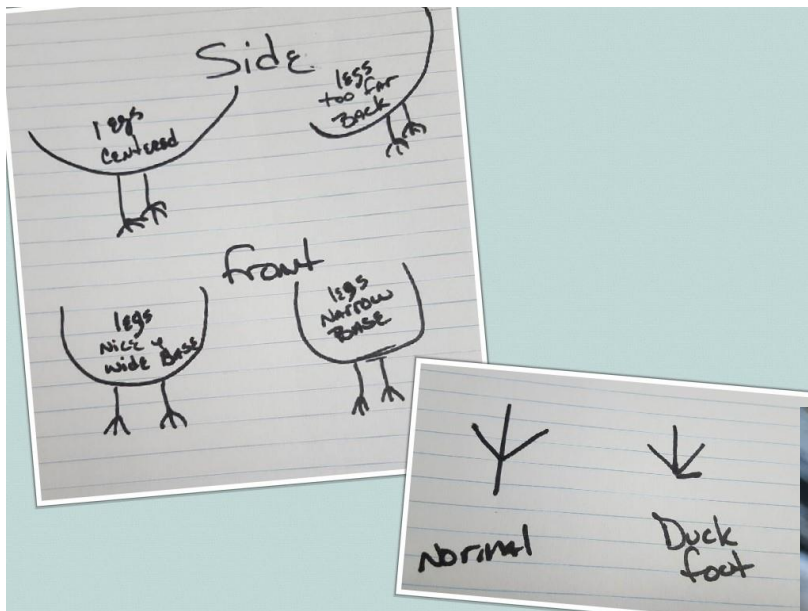 Side
legs
Centered
legs
too far
Back
front
legs
Nice &
Wide Base
legs
Narrow
Base
Normal
Duck
foot